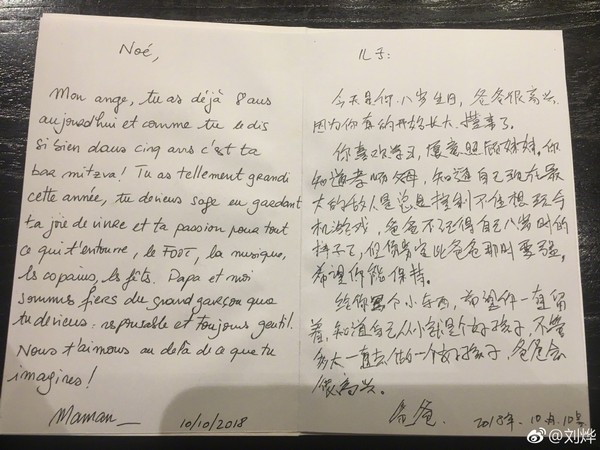 Noé,
Mon ange, tu as déjà 8 ans
aujourd'hui et comme tu le dis
si bien dans cinq ans c'est ta
bar mitzva! Tu as tellement grandi
cette année, tu deviens sage en gardant
ta joie de vivre et ta passion pour tout
ce qui t'entoure, le FOOT, la musique,
les copains, les fêts. Papa et moi
sommes fiers du grand garçon que
tu deviens: responsable et toujours gentil.
Nous t'aimons au delà de ce que tu
imagines!
Maman_
10/10/2018
儿子:
今天是你八岁生日,爸爸很高兴.
因为你真的开始长大、懂事了。
你喜欢学习,愿意照顾妹妹。你
知道孝顺父母,知道自己现在最
大的敌人是总是控制不住想玩手
机游戏,爸爸不记得自己八岁时的
样子了,但你肯定比爸爸那时要强。
希望你能保持。
给你写个小东西,希望你一直留
着,知道自己从小就是个好孩子,不管
多大一直去做一个好孩子,爸爸会
很高兴。
爸爸.
2018年.10月.10号
@刘烨